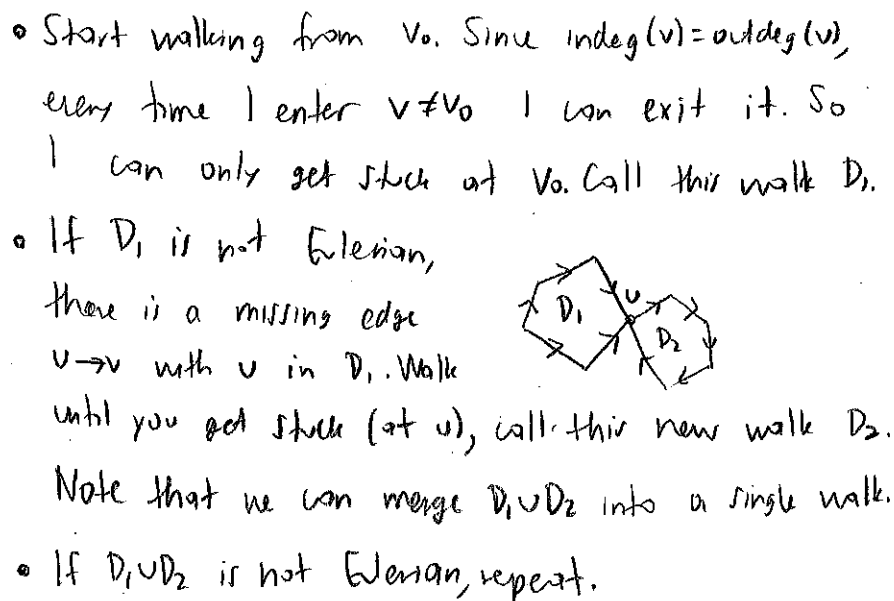 • Start walking from v₀. Since indeg(v)=outdeg(v),
every time I enter v≠v₀ I can exit it. So
I can only get stuck at v₀. Call this walk D₁.
• If D₁ is not Eulerian,
there is a missing edge
u→v with u in D₁. Walk
until you get stuck (at u), call this new walk D₂.
Note that we can merge D₁∪D₂ into a single walk.
• If D₁∪D₂ is not Eulerian, repeat.
D₁
u
D₂